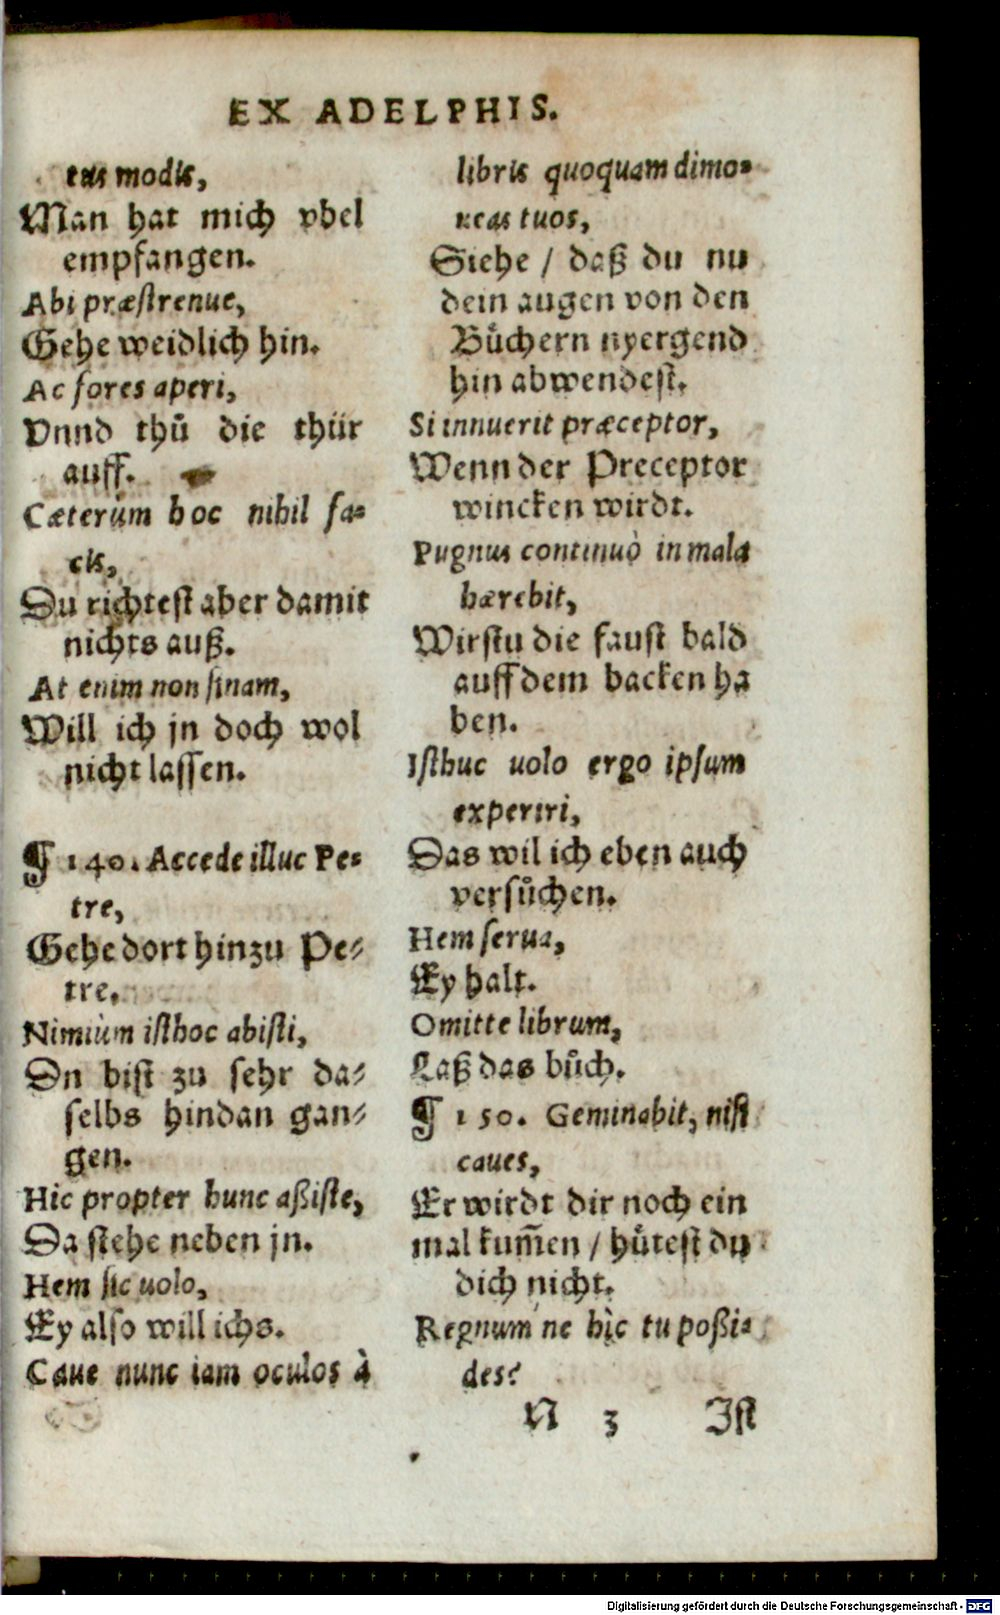 EX ADELPHIS.
tus modis,
Man hat mich vbel
empfangen.
Abi præstrenue,
Gehe weidlich hin.
Ac fores aperi,
Vnnd thuͦ die thür
auff.
Cæterùm hoc nihil fa-
cis,
Du richtest aber damit
nichts auß.
At enim non sinam,
Will ich jn doch wol
nicht lassen.
¶ 140. Accede illuc Pe-
tre,
Gehe dort hinzu Pe-
tre.
Nimiùm isthoc abisti,
Dn bist zu sehr da-
selbs hindan gan-
gen.
Hic propter hunc aßiste,
Da stehe neben jn.
Hem sic uolo,
Ey also will ichs.
Caue nunc iam oculos à
libris quoquam dimo-
ueas tuos,
Siehe / daß du nu
dein augen von den
Buͤchern nyergend
hin abwendest.
Si innuerit præceptor,
Wenn der Preceptor
wincken wirdt.
Pugnus continuò in mala
hærebit,
Wirstu die faust bald
auff dem backen ha
ben.
Isthuc uolo ergo ipsum
experiri,
Das wil ich eben auch
versuͦchen.
Hem serua,
Ey halt.
Omitte librum,
Laß das buͦch.
¶ 150. Geminabit, nisi
caues,
Er wirdt dir noch ein
mal kum̃en / huͤtest du
dich nicht.
Regnum'ne hìc tu poßi-
des?
N 3 Ist
Digitalisierung gefördert durch die Deutsche Forschungsgemeinschaft - DFG